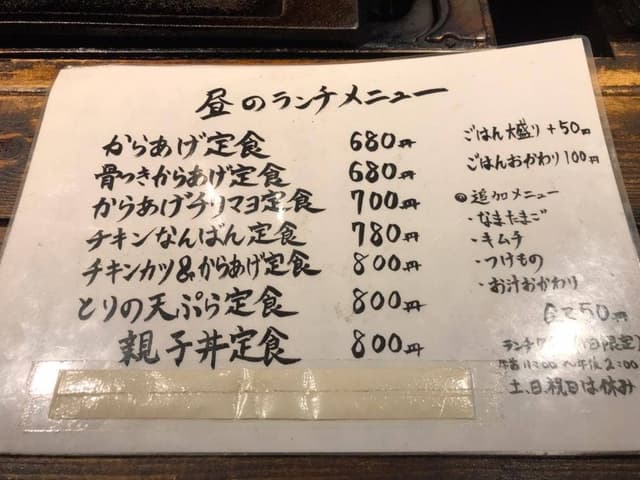 昼のランチメニュー
からあげ定食 680円
骨つきからあげ定食 680円
からあげチリマヨ定食 700円
チキンなんばん定食 780円
チキンカツ&からあげ定食 800円
とりの天ぷら定食 800円
親子丼定食 800円
ごはん大盛り +50円
ごはんおかわり 100円
追加メニュー
・なまたまご
・キムチ
・つけもの
・お汁おかわり
各50円
ランチ 限定
午前11:00〜午後2:00
土、日、祝日は休み